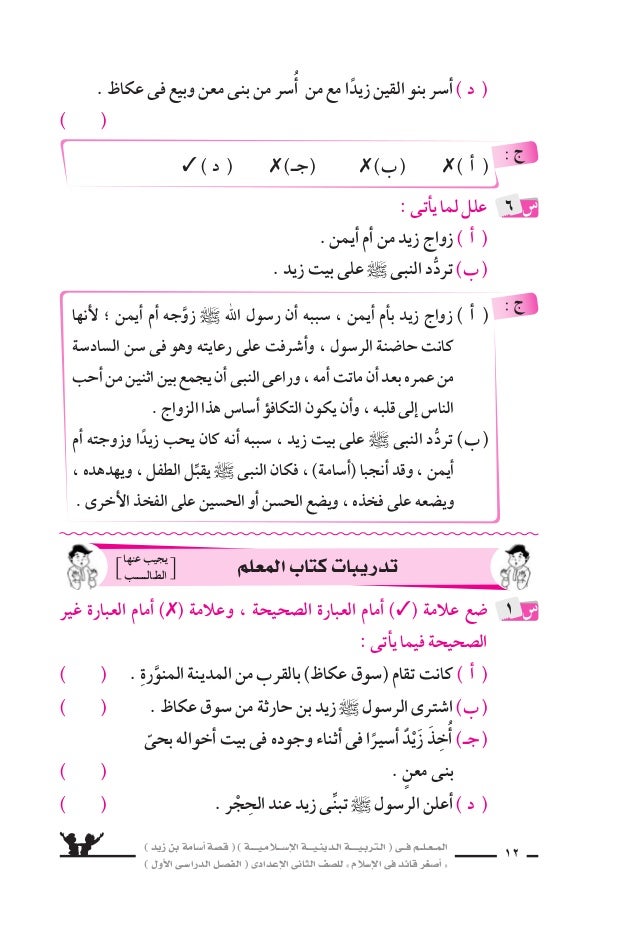 ( د ) أسر بنو القين زيدًا مع من أُسر من بنى معن وبيع فى عكاظ .
(        )
ج :
( أ ) ✗ (ب) ✗ (جـ) ✗ ( د ) ✓
س ٦ علل لما يأتى :
( أ ) زواج زيد من أم أيمن .
(ب) تردُّد النبى ﷺ على بيت زيد .
ج :
( أ ) زواج زيد بأم أيمن ، سببه أن رسول الله ﷺ زوَّجه أم أيمن ؛ لأنها
كانت حاضنة الرسول ، وأشرفت على رعايته وهو فى سن السادسة
من عمره بعد أن ماتت أمه ، وراعى النبى أن يجمع بين اثنين من أحب
الناس إلى قلبه ، وأن يكون التكافؤ أساس هذا الزواج .
(ب) تردُّد النبى ﷺ على بيت زيد ، سببه أنه كان يحب زيدًا وزوجته أم
أيمن ، وقد أنجبا (أسامة) ، فكان النبى ﷺ يقبِّل الطفل ، ويهدهده ،
ويضعه على فخذه ، ويضع الحسن أو الحسين على الفخذ الأخرى .
تدريبات كتاب المعلم
[ يجيب عنها
الطالب ]
س ١ ضع علامة (✓) أمام العبارة الصحيحة ، وعلامة (✗) أمام العبارة غير
الصحيحة فيما يأتى :
( أ ) كانت تقام (سوق عكاظ) بالقرب من المدينة المنوَّرةِ . (        )
(ب) اشترى الرسول ﷺ زيد بن حارثة من سوق عكاظ . (        )
(جـ) أُخِذَ زَيْدٌ أسيرًا فى أثناء وجوده فى بيت أخواله بحىّ
بنى معنٍ . (        )
( د ) أعلن الرسول ﷺ تبنِّى زيد عند الحِجْر . (        )
١٢
المعلم فى ( التربية الدينية الإسلامية ) ( قصة أسامة بن زيد )
« أصغر قائد فى الإسلام » للصف الثانى الإعدادى ( الفصل الدراسى الأول )